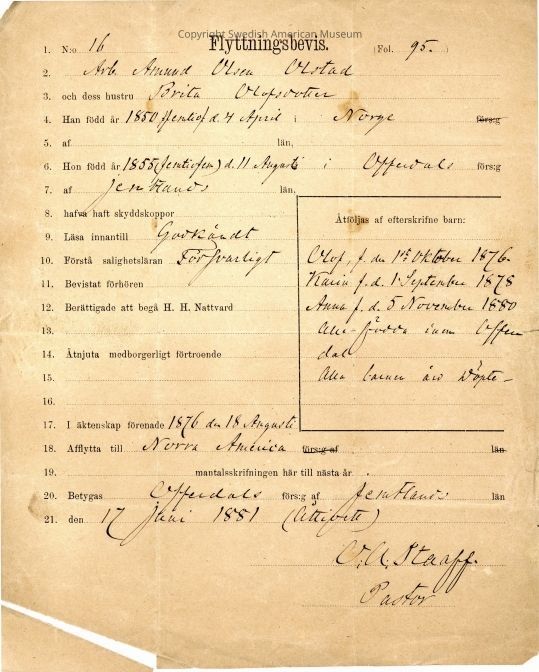 Copyright Swedish American Museum
Flyttningsbevis.
1. N:o 16 (Fol. 95.)
2. Arb. Amund Olsen Olstad
3. och dess hustru Brita Olofsdotter
4. Han född år 1850 (femtio) d. 4 April i Norge förs:g
5. af län,
6. Hon född år 1855 (femtiofem) d. 11 Augusti i Offerdals förs:g
7. af Jemtlands län,
8. hafva haft skyddskoppor
Åtföljas af efterskrifne barn:
9. Läsa innantill Godkändt
10. Förstå salighetsläran Försvarligt
Olof, f. den 1 Oktober 1876.
11. Bevistat förhören
Karin f. d. 1 September 1878
12. Berättigade att begå H. H. Nattvard
Anna f. d. 5 November 1880
13.
Alla födda inom Offerdal
14. Åtnjuta medborgerligt förtroende
15.
Alla barnen äro döpte
16.
17. I äktenskap förenade 1876 den 18 Augusti
18. Afflytta till Norra America förs:g af län
19. mantalsskrifningen här till nästa år
20. Betygas Offerdals förs:g af Jemtlands län
21. den 17 Juni 1881 (Åttioett)
O. A. Staaff.
Pastor